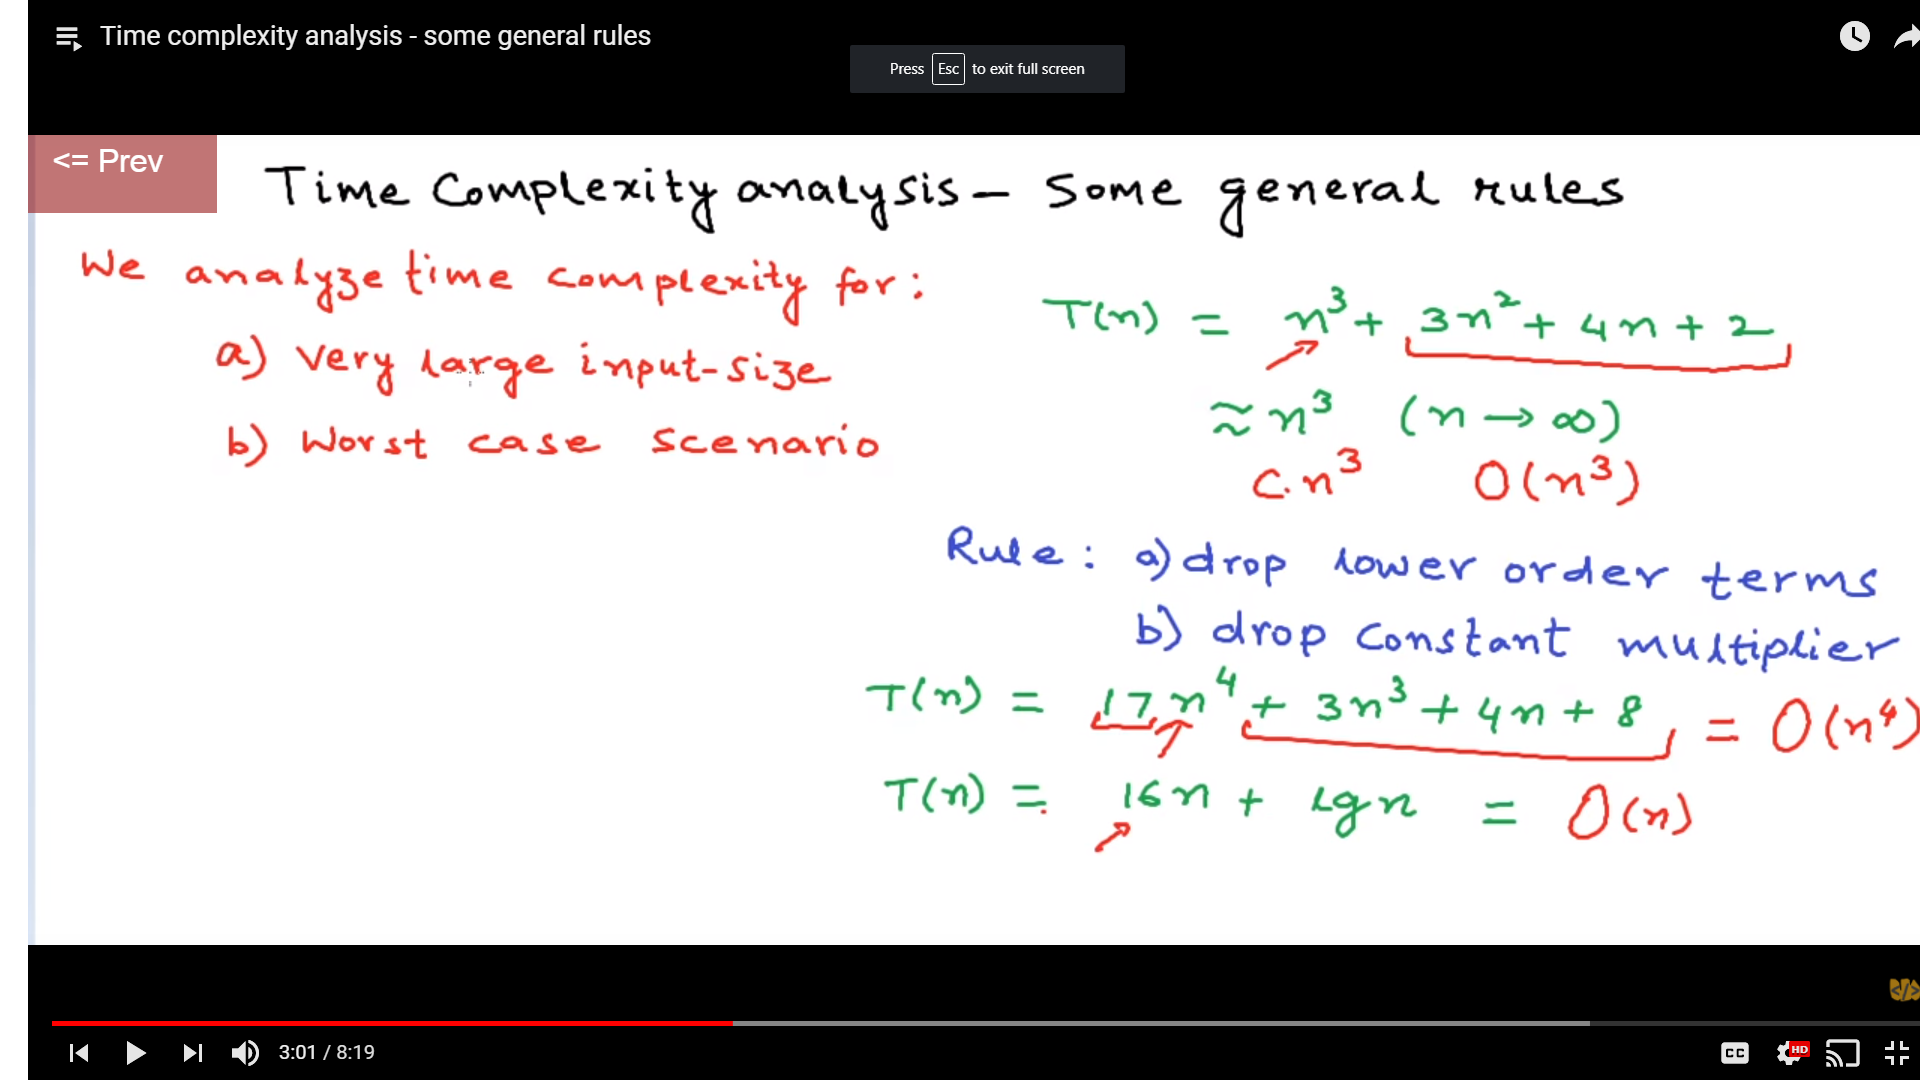 Time complexity analysis - some general rules
Press Esc to exit full screen
<= Prev
Time Complexity analysis - Some general rules
We analyze time complexity for:
a) very large input-size
b) Worst case scenario
T(n) = n³ + 3n² + 4n + 2
≈ n³ (n → ∞)
C.n³ O(n³)
Rule: a) drop lower order terms
b) drop constant multiplier
T(n) = 17n⁴ + 3n³ + 4n + 8 = O(n⁴)
T(n) = 16n + lgn = O(n)
3:01 / 8:19
CC
HD